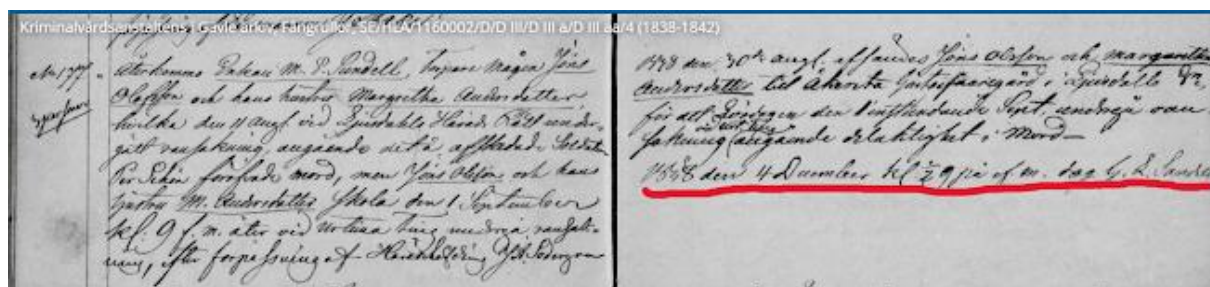 Kriminalvårdsanstaltens i Gävle arkiv, Fångrullor, SE/HLA/1160002/D/D III/D III a/D III aa/4 (1838-1842)
No 177
återkommo Enkan M. P. Sundell, Torpare Mågen Jöns
Olofsson och hans hustru Margretha Andersdotter,
hvilka den 11 Augl vid Ljusdahls Härads Rätt under-
gått ransakning, angående det å afskedade Soldaten
Per Schön föröfvade mord, men Jöns Olofson och hans
hustru M. Andersdotter skola den 1 September
kl. 9 f. m. åter vid Urtima ting undergå ransak-
ning, efter forpassning af
1838 den 30de augl. affandes Jöns Olofson och Margaretha
Andersdotter till Åkersta Gästgifvaregård i Ljusdahls
för att Lördagen den 1 instundande Sept. undergå ran-
sakning angående delaktighet i Mord
1838 den 4 December kl ½ 9 på ef m. dog